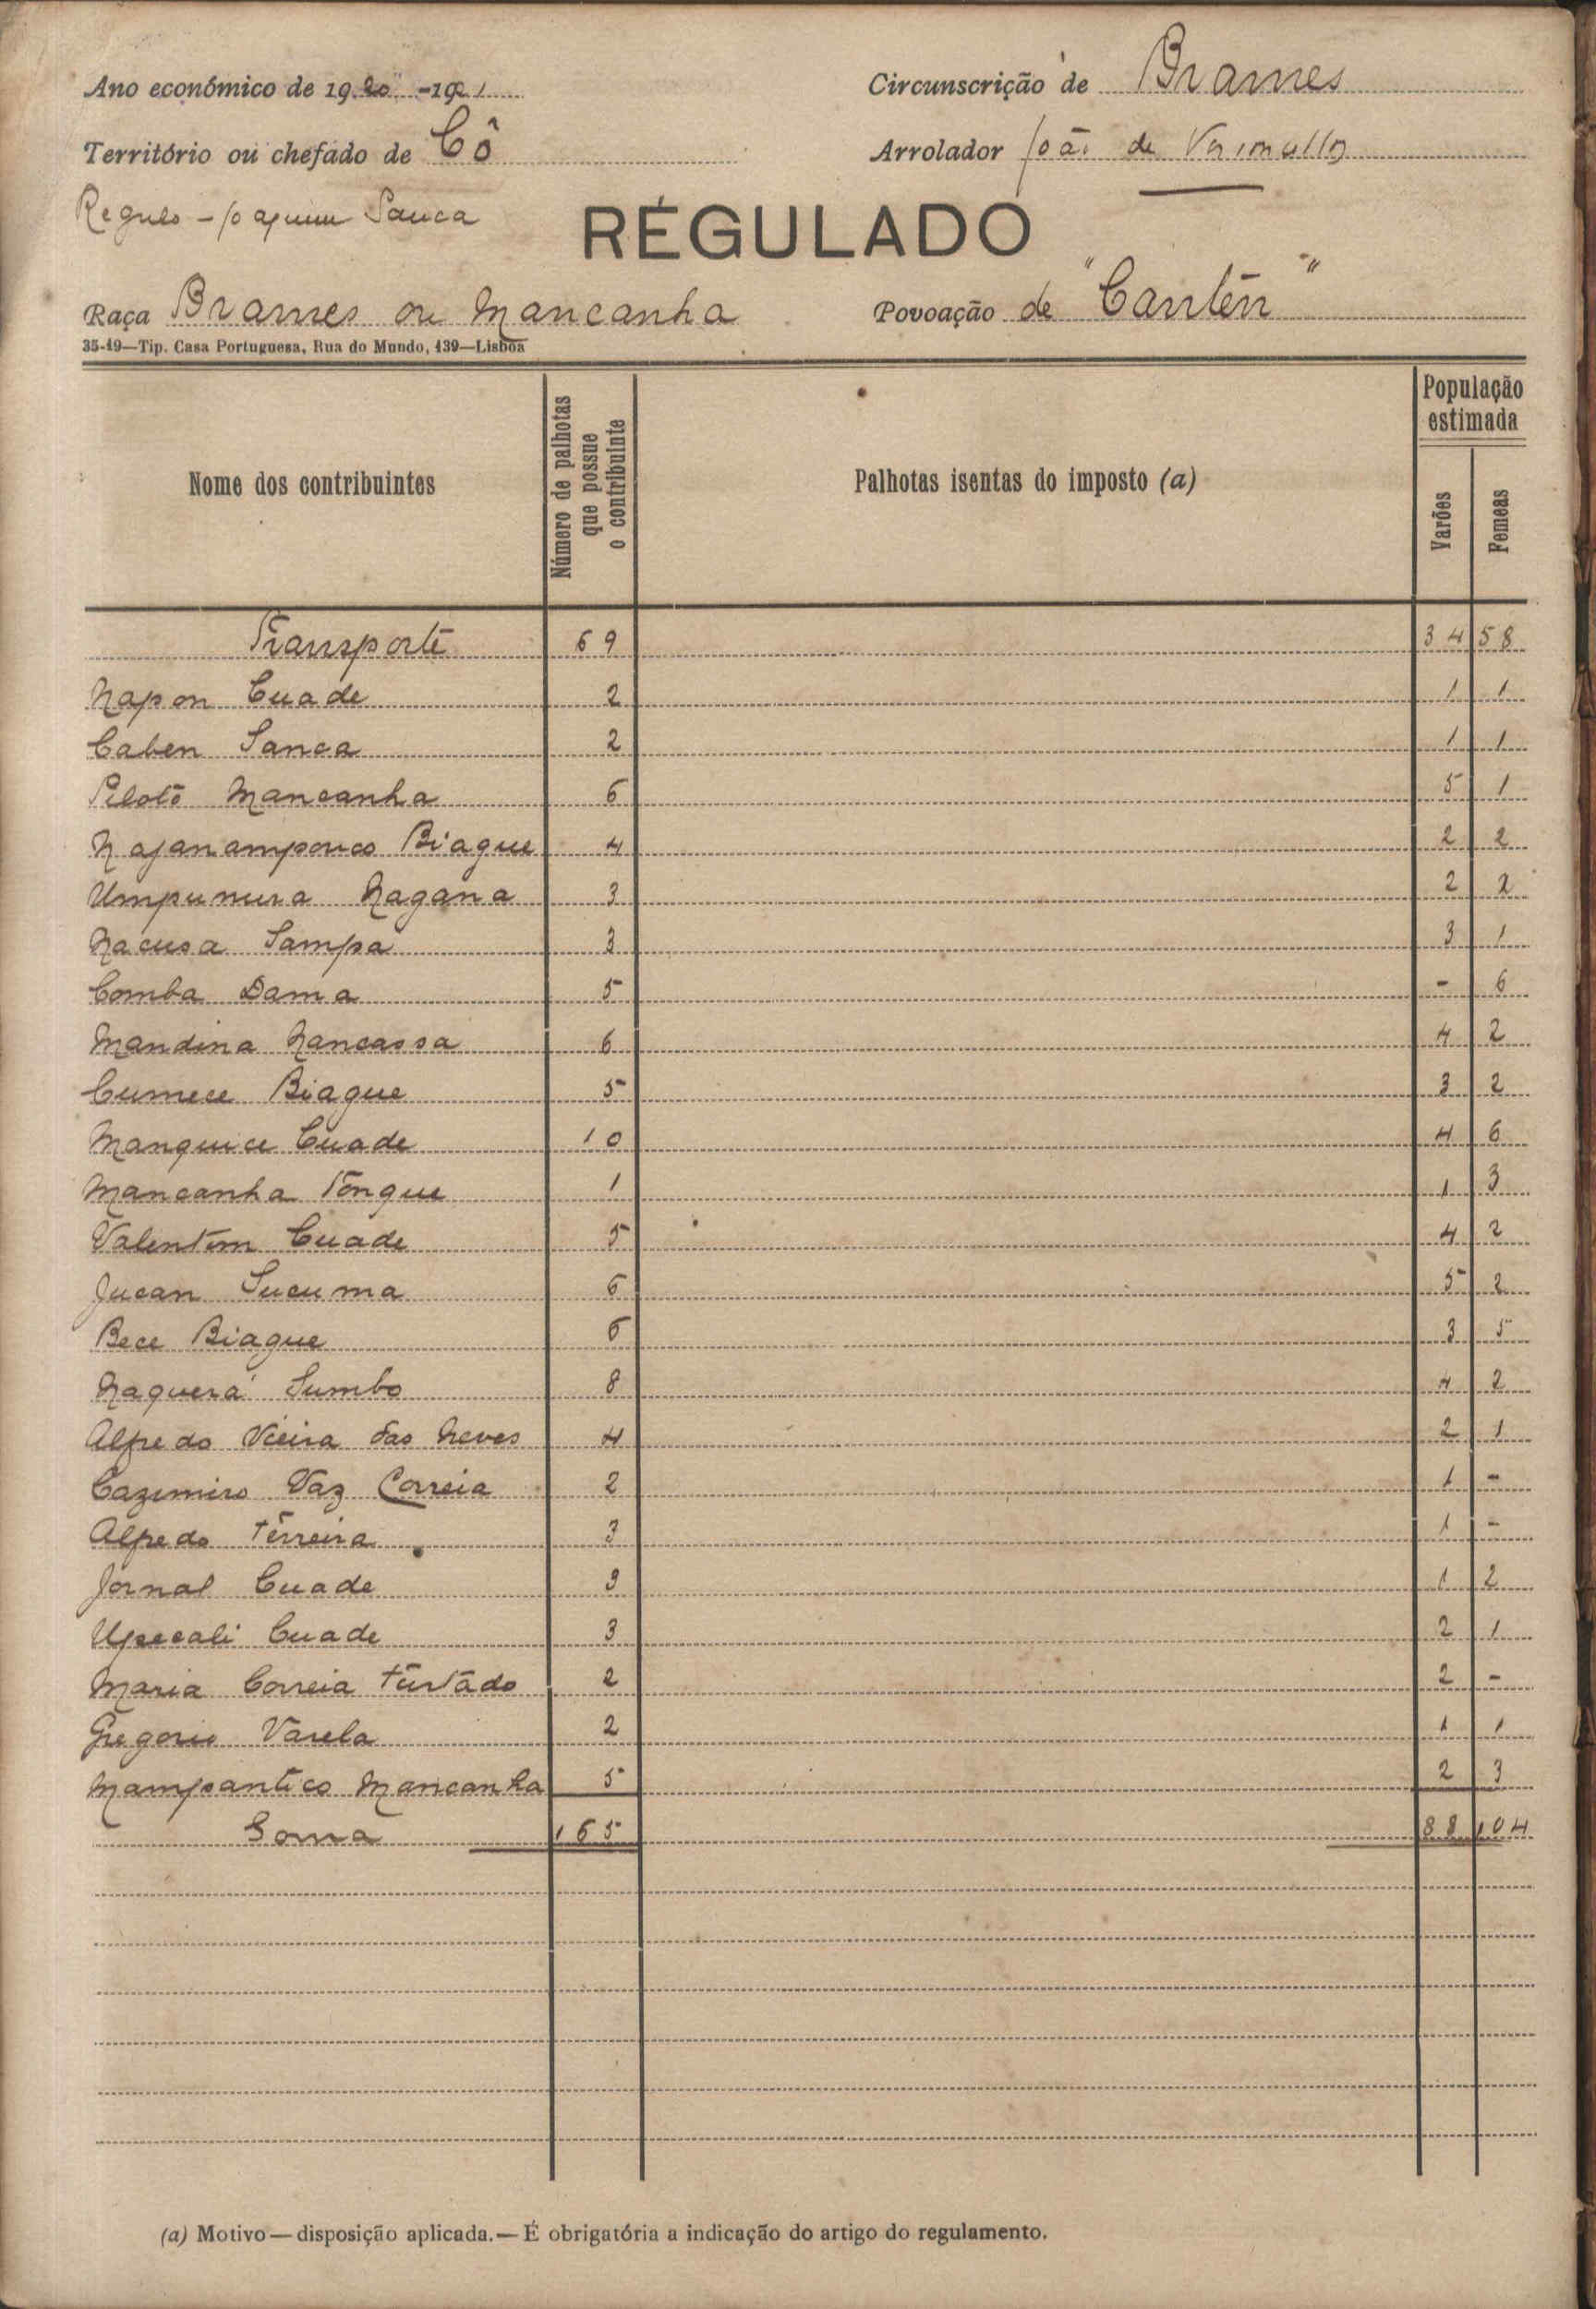 Ano económico de 1920-1921 Circunscrição de Brames
Território ou chefado de Cô Arrolador João de
Regulo - Joaquim Sanca
RÉGULADO
Raça Brames ou Mancanha Povoação de "Cantên"
35-19—Tip. Casa Portuguesa, Rua do Mundo, 139—Lisboa
Nome dos contribuintes Número de palhotas que possue o contribuinte Palhotas isentas do imposto (a) População estimada Varões Femeas
Transporte 69 34 58
Napon Cuade 2 1 1
Caben Sanca 2 1 1
Pelotê Mancanha 6 5 1
Najanampouco Biague 4 2 2
Umpunura Nagana 3 2 2
Nacusa Sampa 3 3 1
Comba Dama 5 - 6
Mandina Nancassa 6 4 2
Cumece Biague 5 3 2
Manquice Cuade 10 4 6
Mancanha Tongue 1 1 3
Valentim Cuade 5 4 2
Jucan Sucuma 6 5 2
Bece Biague 6 3 5
Naquerá Sumbo 8 4 2
Alfredo Vieira das Neves 4 2 1
Cazimiro Vaz Correia 2 1 -
Alfredo Ferreira 3 1 -
Jornal Cuade 3 1 2
Upecali Cuade 3 2 1
Maria Correia Furtado 2 2 -
Gregorio Varela 2 1 1
Mampantico Mancanha 5 2 3
Soma 165 88 104
(a) Motivo—disposição aplicada.—É obrigatória a indicação do artigo do regulamento.